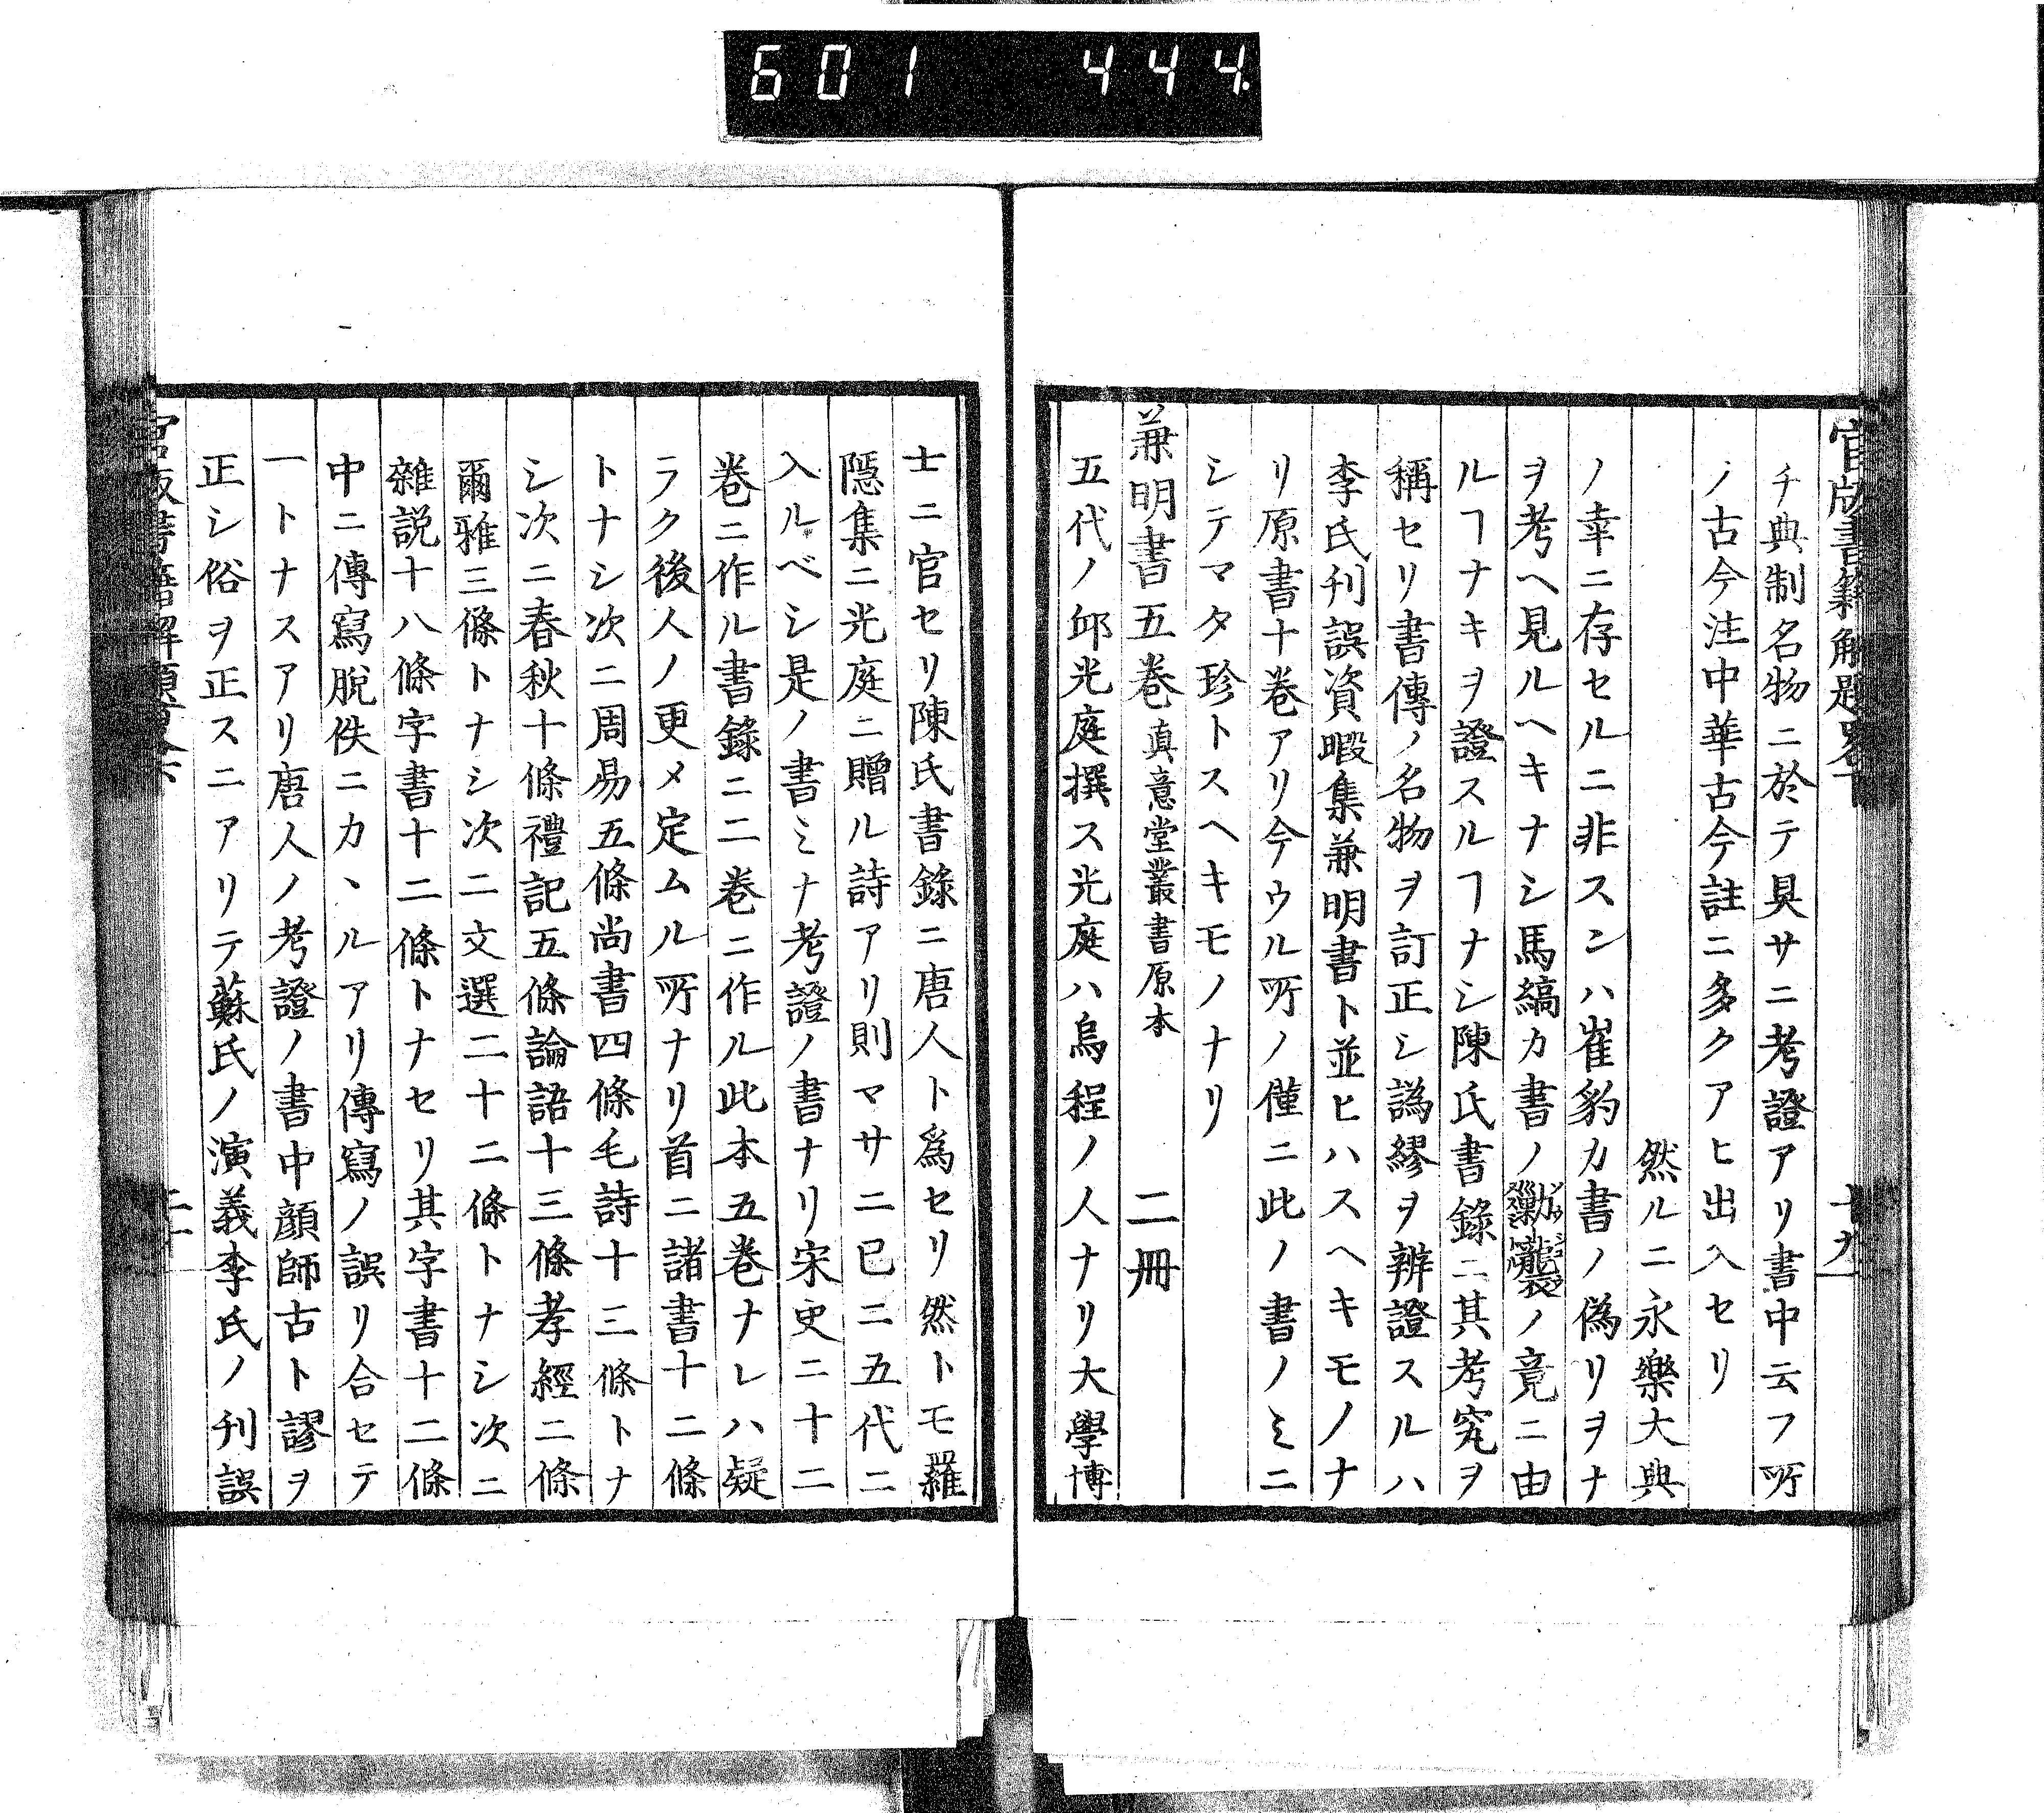 601 444
官版書籍解題畧下 十九
チ典制名物ニ於テ具サニ考證アリ書中云フ所
ノ古今注中華古今註ニ多クアヒ出入セリ
然ルニ永樂大典
ノ幸ニ存セルニ非スンハ崔豹カ書ノ偽リヲナ
ヲ考ヘ見ルヘキナシ馬縞カ書ノ勦襲ノ竟ニ由
ルヿナキヲ證スルヿナシ陳氏書錄ニ其考究ヲ
稱セリ書傳ノ名物ヲ訂正シ譌繆ヲ辨證スルハ
李氏刊誤資暇集兼明書ト並ヒハスヘキモノナ
リ原書十卷アリ今ウル所ノ僅ニ此ノ書ノミニ
シテマタ珍トスヘキモノナリ
兼明書五卷 真意堂叢書原本 二冊
五代ノ邱光庭撰ス光庭ハ烏程ノ人ナリ大學博
士ニ官セリ陳氏書錄ニ唐人ト為セリ然トモ羅
隱集ニ光庭ニ贈ル詩アリ則マサニ已ニ五代ニ
入ルベシ是ノ書ミナ考證ノ書ナリ宋史ニ十二
卷ニ作ル書錄ニ二卷ニ作ル此本五卷ナレハ疑
ラク後人ノ更メ定ムル所ナリ首ニ諸書十二條
トナシ次ニ周易五條尚書四條毛詩十三條トナ
シ次ニ春秋十條禮記五條論語十三條孝經二條
爾雅三條トナシ次ニ文選二十二條トナシ次ニ
雜説十八條字書十二條トナセリ其字書十二條
中ニ傳寫脫佚ニカヽルアリ傳寫ノ誤リ合セテ
一トナスアリ唐人ノ考證ノ書中顔師古ト謬ヲ
正シ俗ヲ正スニアリテ蘇氏ノ演義李氏ノ刊誤